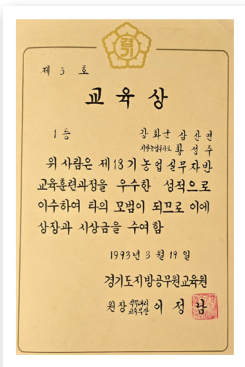 경기
제 3 호
교육상
1등
강화군 삼산면
지방농업주사보 황성주
위 사람은 제18기 농업실무자반
교육훈련과정을 우수한 성적으로
이수하여 타의 모범이 되므로 이에
상장과 시상금을 수여함
1993년 3월 19일
경기도지방공무원교육원
원장 이정남